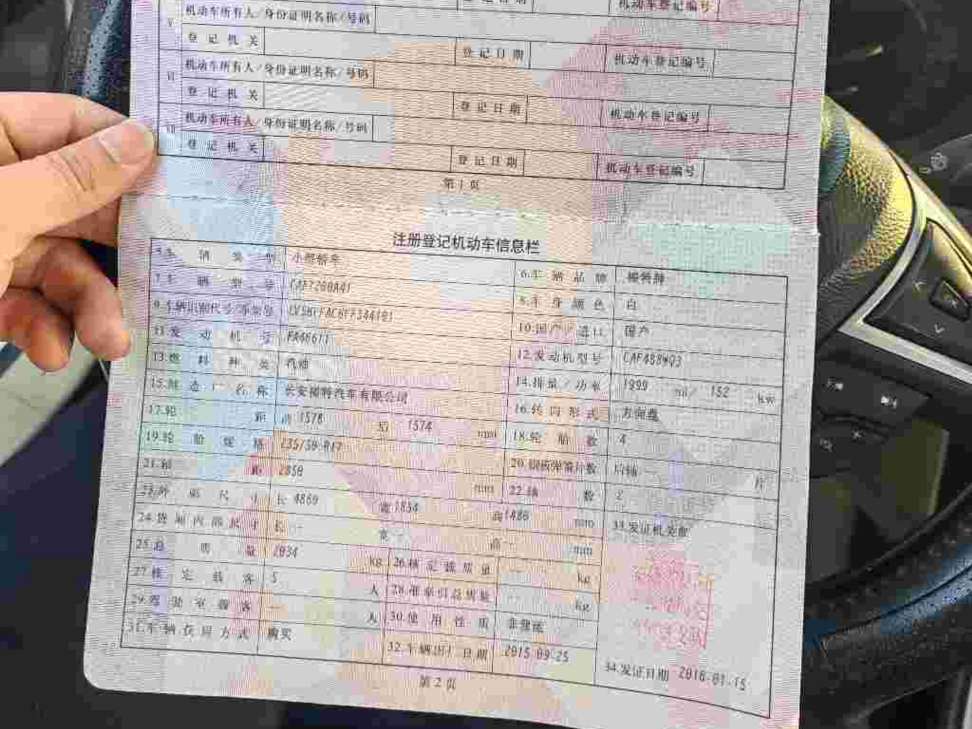 机动车登记编号
V 机动车所有人/身份证明名称/号码
登记机关 登记日期 机动车登记编号
VI 机动车所有人/身份证明名称/号码
登记机关 登记日期 机动车登记编号
VII 机动车所有人/身份证明名称/号码
登记机关 登记日期 机动车登记编号
第1页
注册登记机动车信息栏
5.车辆类型 小型轿车 6.车辆品牌
7.车辆型号 CAF7200A41 8.车身颜色 白
9.车辆识别代号/车架号 10.国产/进口 国产
11.发动机号 12.发动机型号 CAF488WQ3
13.燃料种类 汽油 14.排量/功率 1999 ml/ 152 kw
15.制造厂名称 长安福特汽车有限公司 16.转向形式 方向盘
17.轮距 前 1578 后 1574 mm 18.轮胎数 4
19.轮胎规格 235/50 R17 20.钢板弹簧片数 后轴 -- 片
21.轴距 2850 mm 22.轴数 2
23.外廓尺寸 长 4869 宽 1854 高 1486 mm 33.发证机关章
24.货厢内部尺寸 长 -- 宽 -- 高 -- mm
25.总质量 2034 kg 26.核定载质量 -- kg
27.核定载客 5 人 28.准牵引总质量 -- kg
29.驾驶室载客 -- 人 30.使用性质 非营运
31.车辆获得方式 购买 32.车辆出厂日期 2015-09-25 34.发证日期 2016-01-15
第2页